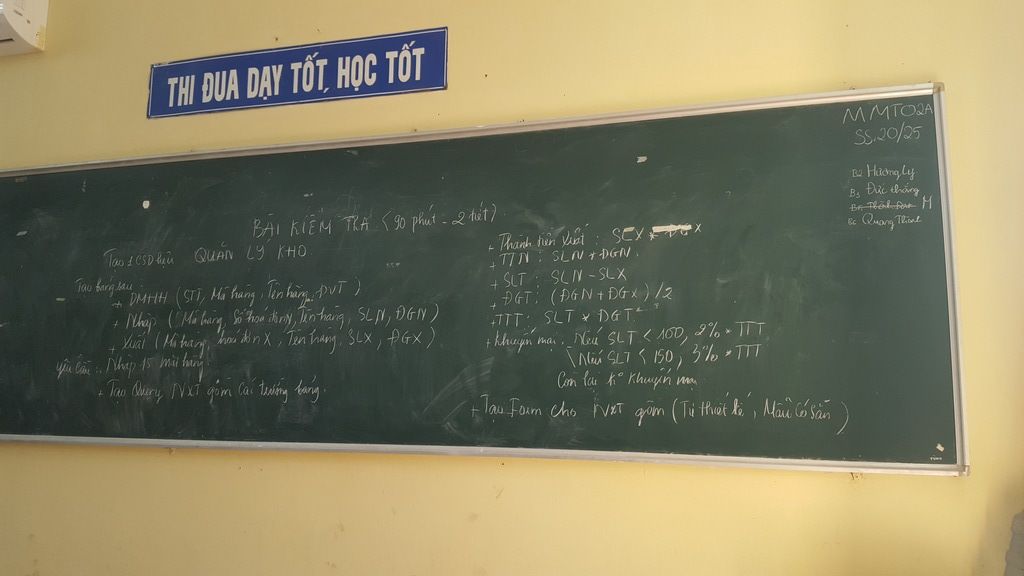 THI ĐUA DẠY TỐT, HỌC TỐT
MMT02A
SS. 20/25
B2 Hương Ly
B3 Đức thắng
M
Bc Quang Thành
BÀI KIỂM TRA (90 phút - 2 tiết)
Tạo 1 CSDL QUẢN LÝ KHO
Tạo bảng sau
+ DMHH (STT, Mã hàng, Tên hàng, ĐVT)
+ Nhập (Mã hàng, Số hóa đơn N, Tên hàng, SLN, ĐGN)
+ Xuất (Mã hàng, hoá đơn X, Tên hàng, SLX, ĐGX)
yêu cầu: Nhập 15 mặt hàng
+ Tạo Query NXT gồm các trường bảng.
+ Thành tiền Xuất: SLX * ĐGX
+ TTN: SLN * ĐGN.
+ SLT: SLN - SLX
+ ĐGT: (ĐGN + ĐGX) /2
+ TTT: SLT * ĐGT
+ Khuyến mại: Nếu SLT < 100, 2% * TTT
Nếu SLT < 150, 3% * TTT
Còn lại ko khuyến mại
+ Tạo Form cho NXT gồm (Tự thiết kế, Mẫu Có Sẵn)